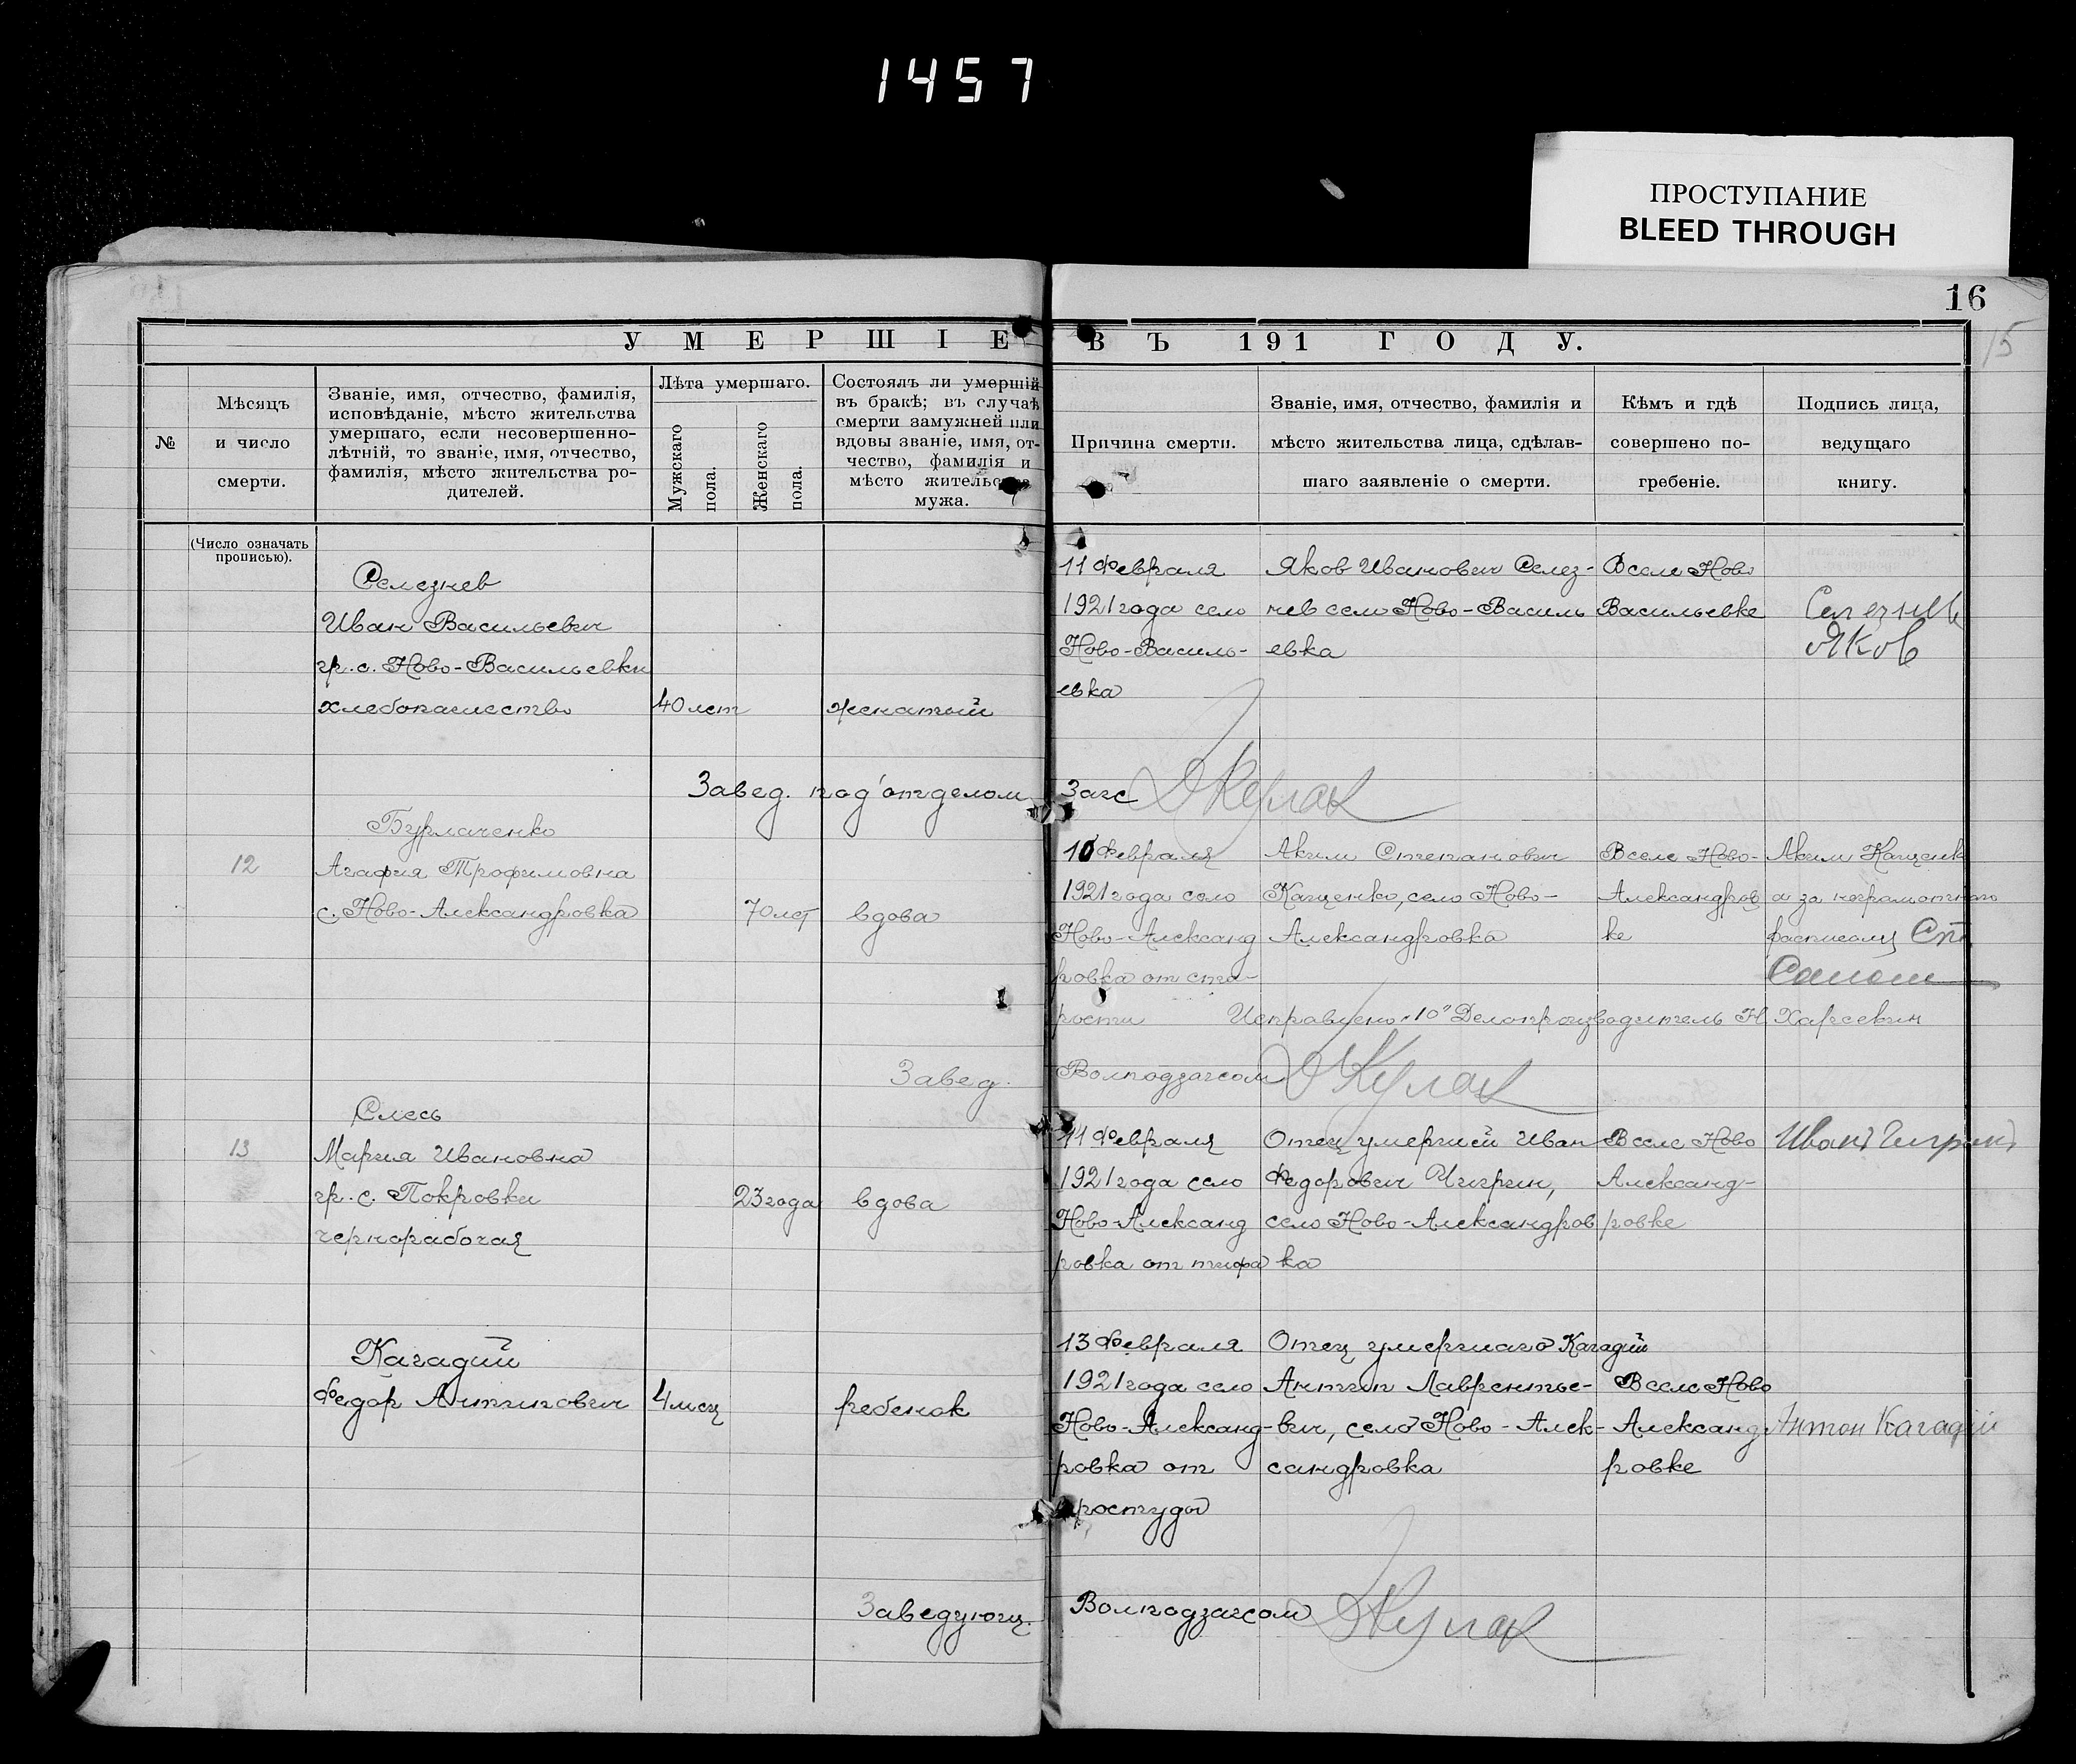 1457
ПРОСТУПАНИЕ
BLEED THROUGH
16
15
УМЕРШІЕ ВЪ 191 ГОДУ.
№
Мѣсяцъ
и число
смерти.
Званіе, имя, отчество, фамилія,
исповѣданіе, мѣсто жительства
умершаго, если несовершенно-
лѣтній, то званіе, имя, отчество,
фамилія, мѣсто жительства ро-
дителей.
Лѣта умершаго.
Мужскаго
пола.
Женскаго
пола.
Состоялъ ли умершій
въ бракѣ; въ случаѣ
смерти замужней или
вдовы званіе, имя, от-
чество, фамилія и
мѣсто жительства
мужа.
Причина смерти.
Званіе, имя, отчество, фамилія и
мѣсто жительства лица, сдѣлав-
шаго заявленіе о смерти.
Кѣмъ и гдѣ
совершено по-
гребеніе.
Подпись лица,
ведущаго
книгу.
(Число означать
прописью).
Селезнев
Иван Васильевич
гр. с. Ново-Васильевки
хлебопашество
40 лет
женатый
11 Февраля
1921 года село
Ново-Василь-
евка
Яков Иванович Селез-
нев село Ново-Василь
евка
В селе Ново
Васильевке
Селезнев
Яков
Завед. под'отделом Загс Д Кулак
12
Бурлаченко
Агафия Трофимовна
с. Ново-Александровка
70 лет
вдова
10 Февраля
1921 года село
Ново-Александ
ровка от ста-
рости
Аким Степанович
Кащенко, село Ново-
Александровка
В селе Ново-
Александров
ке
Аким Кащенк
а за неграмотного
расписался
Исправлено "10" Делопроизводитель Н
Завед. Волподзагсом Д Кулак
13
Слесь
Мария Ивановна
гр. с. Покровки
чернорабочая
23 года
вдова
11 Февраля
1921 года село
Ново-Александ
ровка от тифа
Отец умершей Иван
Федорович Чигрин,
село Ново-Александров
ка
В селе Ново
Александ-
ровке
Иван Чигрин
Кагадий
Федор Антинович
4 мец
ребенок
13 Февраля
1921 года село
Ново-Александ-
ровка от
простуды
Отец умершаго Кагадий
Антин Лаврентье-
вич, село Ново-Алек-
сандровка
В селе Ново
Александ-
ровке
Антон Кагадий
Заведующ. Волподзагсом Д Кулак